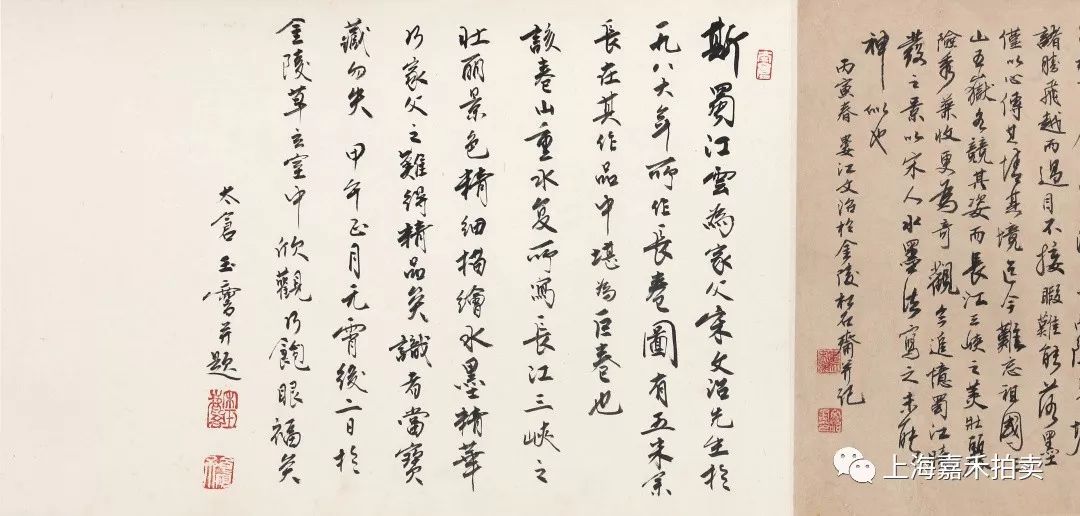 諸勝飛越而過目不接暇難能落墨
僅以心傳其情其境迄今難忘祖國
山五嶽各競其姿而長江三峽之美壯麗
險秀兼收更為奇觀余追憶蜀江
發之景以宋人水墨法寫之未能
神似也
丙寅春婁江文治於金陵松石齋并記
斯蜀江雲為家父宋文治先生於
一九八六年所作長卷圖有五米余
長在其作品中堪為巨卷也
該卷山重水复所寫長江三峽之
壯丽景色精細描繪水墨精華
乃家父之難得精品矣識者當寶
藏勿失 甲午正月元宵後二日於
金陵草玄室中欣觀乃飽眼福矣
太倉玉麐并題
上海嘉禾拍卖